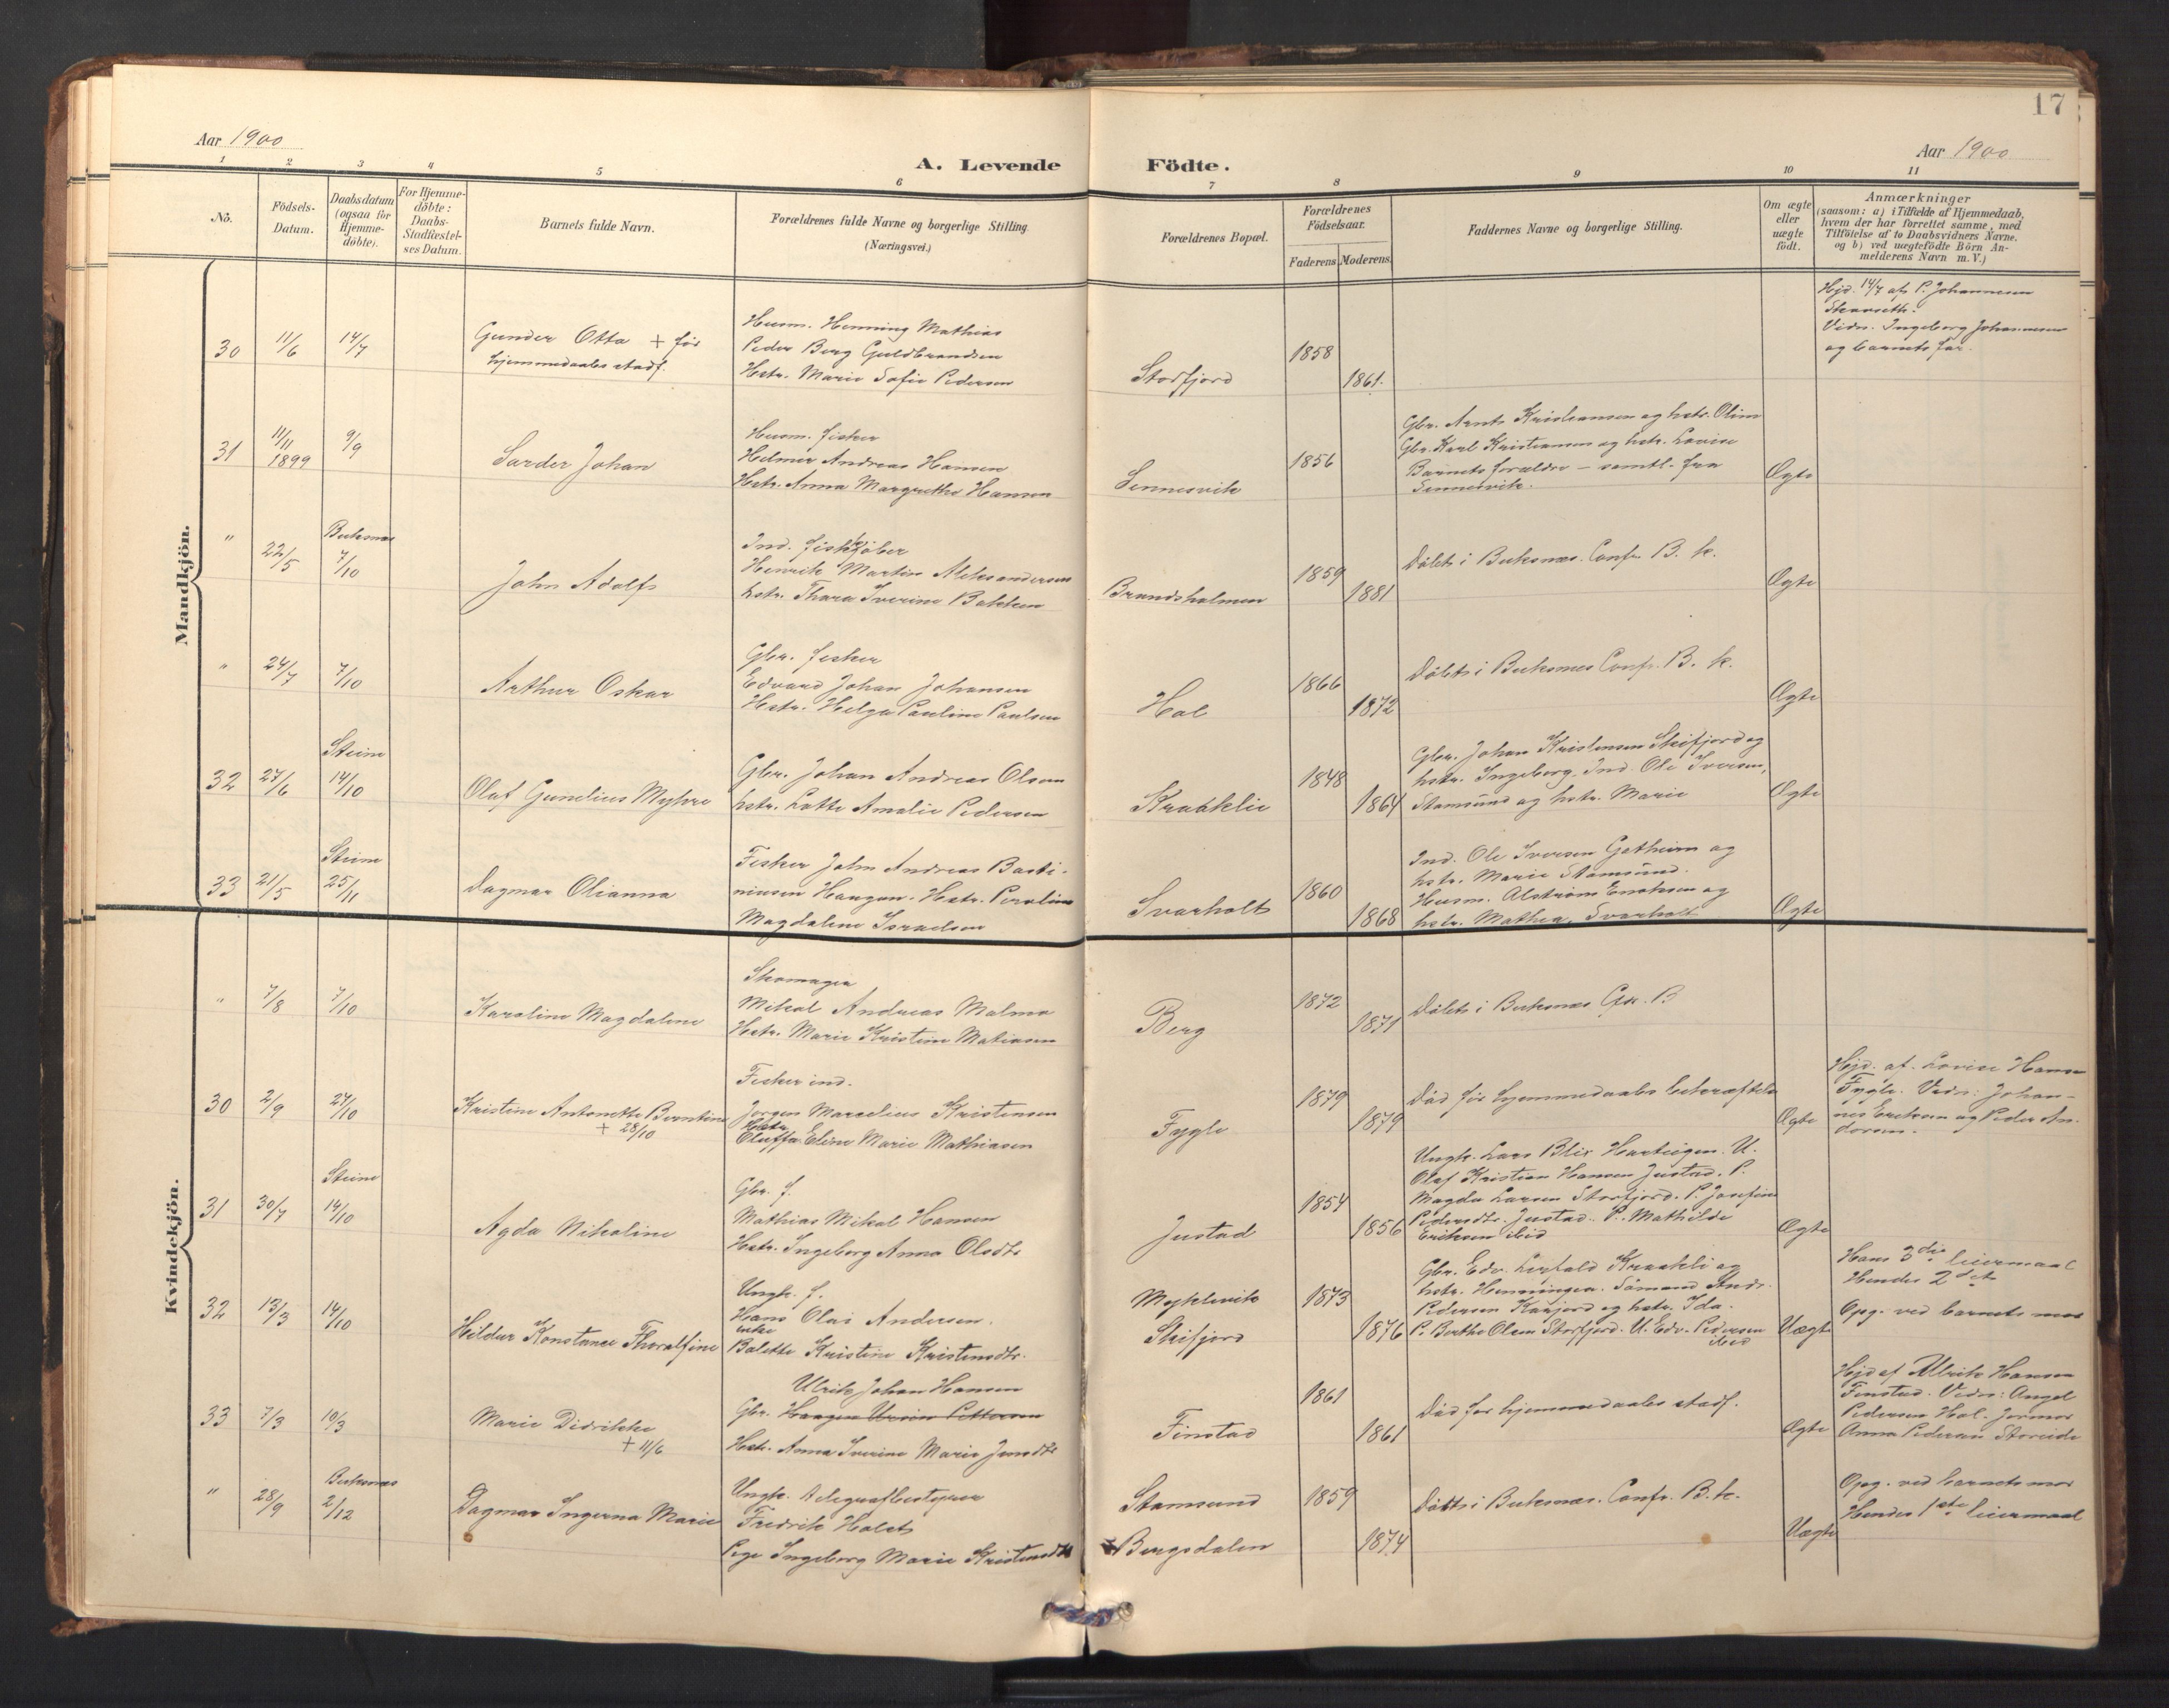 17
Aar 1900
A. Levende Födte.
Aar 1900
1 2 3 4 5 6 7 8 9 10 11
No.
Födsels-
Datum.
Daabsdatum
(ogsaa for
Hjemme-
döbte).
For Hjemme-
döbte:
Daabs-
Stadfæstel-
ses Datum.
Barnets fulde Navn.
Forældrenes fulde Navne og borgerlige Stilling
(Næringsvei.)
Forældrenes Bopæl.
Forældrenes
Födselsaar.
Faderens Moderens.
Faddernes Navne og borgerlige Stilling.
Om ægte
eller
uægte
födt.
Anmærkninger
(saasom: a) i Tilfælde af Hjemmedaab,
hvem der har forrettet samme, med
Tilföielse af to Daabsvidners Navne,
og b) ved uægtefödte Börn An-
melderens Navn m. V.)
Mandkjön.
30 11/6 14/7
Gunder Otta + før
hjemmedaabes stadf.
Husm. Henning Mathias
Peder Berg Guldbrandsen
Hstr. Marie Sofie Pedersen
Storfjord
1858
1861.
Hjd. 14/7 af P. Johannesen
Vidn. Ingeborg Johannesen
og barnets far.
31 11/11 1899 9/9
Sarder Johan
Husm. fisker
Helmer Andreas Hansen
Hstr. Anna Margrethe Hansen
Sennesvik
1856
Gbr. Arnt Kristiansen og hstr. Oline
Gbr. Karl Kristiansen og hstr. Lovise
Barnets forældre – samtl. fra
Sennesvik.
Ægte
" 22/5 Buksnes 7/10
John Adolf
Ind. fiskekjøber
Henrik Martin Aleksandersen
hstr. Thora Iverine Bakken
Brandsholmen
1859
1881
Døbt i Buksnes. Confr. B. k.
Ægte
" 24/7 7/10
Arthur Oskar
Gbr. fisker
Edvard Johan Johansen
Hstr. Helga Pauline Paulsen
Hol
1866
1872
Døbt i Buksnes Confr. B. k.
Ægte
32 27/6 Steine 14/10
Olaf Gunelius Myhre
Gbr. Johan Andreas Olsen
hstr. Lotte Amalie Pedersen
Kraaklie
1848
1864
Gbr. Johan Kristensen Skifjord og
hstr. Ingeborg. Ind. Ole Iversen,
Stamsund og hstr. Marie
Ægte
33 21/5 Steine 25/11
Dagmar Olianna
Fisker John Andreas Basti-
niusen Haugan. Hstr. Peroline
Magdalene Israelsen
Svarholt
1860
1868
Ind. Ole Iversen Gotheim og
hstr. Marie Stamsund.
Husm. Alstrøm Enoksen og
hstr. Mathea, Svarholt
Ægte
Kvindekjön.
" 7/8 7/10
Karoline Magdalene
Skomager
Mikal Andreas Malmo
Hstr. Marie Kristine Matiasen
Berg
1872
1871
Døbt i Buksnes Cfr. B
30 2/9 27/10
Kristine Antonette Berntine
+ 28/10
Fisker ind.
Jørgen Marcelius Kristensen
Hstr.
Oluffa Eline Marie Mathiasen
Fygle
1879
1879
Død før hjemmedaabs bekræftels
Ægte
Hjd. af. Lovise Hansen
Fygle. Vidn: Johan-
nes Eriksen og Peder An-
dersen.
31 30/7 Steine 14/10
Agda Nikoline
Gbr. f.
Mathias Mikal Hansen
Hstr. Ingeborg Anna Olsdtr
Justad
1854
1856
Ungk. Lars Blix Hartvigsen. U.
Olaf Kristian Hansen Justad. P.
Magda Larsen Storfjord. P. Josefine
Pedersdtr. Justad. P. Mathilde
Eriksen ibid
Ægte
32 13/3 14/10
Hildur Konstance Thoralfine
Ungk. f.
Hans Olai Andersen.
enke
Bolette Kristine Kristensdtr.
Myklevik
Skifjord
1873
1876
Gbr. Edv. Leufald Kraakli og
hstr. Henningea. Sømand Andr.
Pedersen Kaafjord og hstr. Ida.
P. Berthe Olsen Storfjord. U. Edv. Pedersen
ibid
Uægte
Hans 3die leiermaal
Hendes 2det
Opg. ved barnets mor
33 7/3 10/3
Marie Didrikke
+ 11/6
Ulrik Johan Hansen
Gbr. Haagen Ursin Pettersen
Hstr. Anna Iverine Marie Jensdtr
Finstad
1861
1861
Død før hjemmedaabes stadf.
Ægte
Hjd af Ulrik Hansen
Finstad. Vidn: Angel
Pedersen Hol. Jormor
Anna Pedersen Storeide
" 28/9 Buksnes 2/12
Dagmar Ingerna Marie
Ungk. telegrafbestyrer
Fredrik Holst
Pige Ingeborg Marie Kristensdtr
Stamsund
Bergsdalen
1859
1874
Døbt i Buksnes. Confr. B. k.
Uægte
Opg. ved barnets mor
Hendes 1ste leiermaal